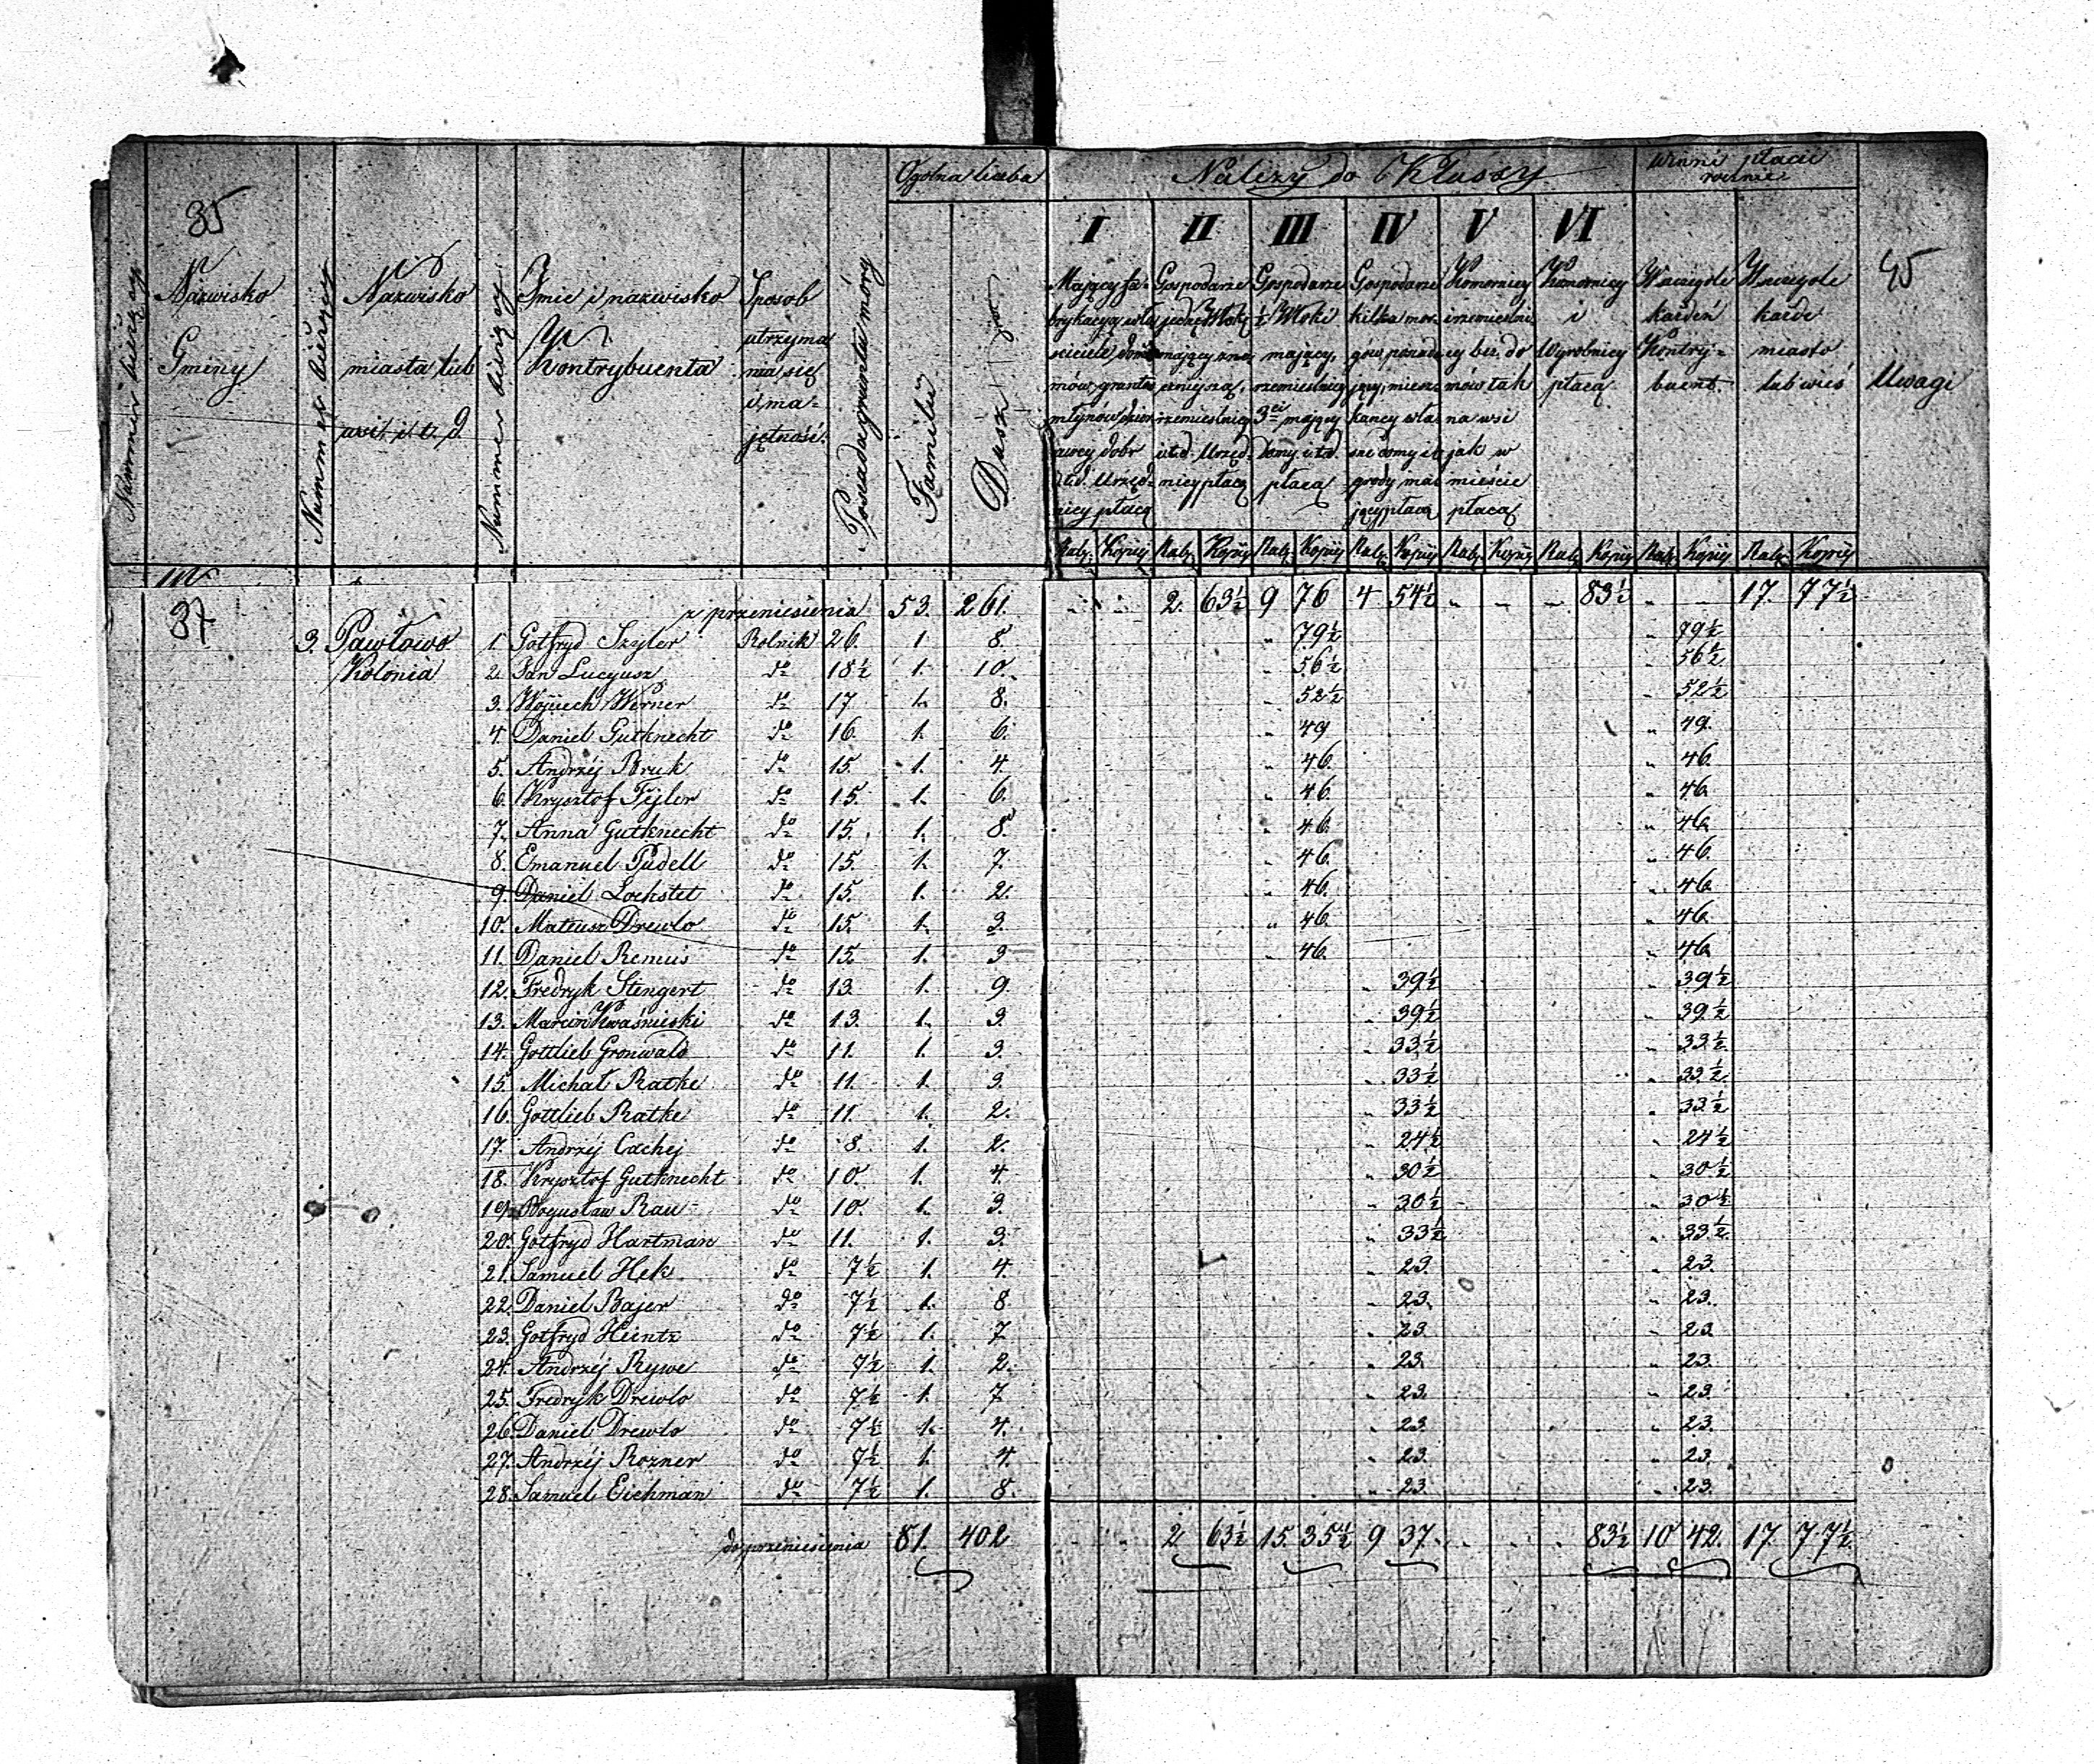 35
45
Nummer bieżący
Nazwisko
Gminy
Nummer bieżący
Nazwisko
miasta lub
wsi i t. d.
Nummer bieżący
Imie i nazwisko
Kontrybuenta
Sposob
utrzyma
nia się
i ma-
jętność.
Posiada gruntu morg
Ogolna liczba
Familii
Dusz
Należy do Klassy
I
II
III
IV
V
VI
Gospodarze
½ Włoki
mający,
rzemieślnicy
3ei mający
Domy i t.d.
płacą
Komornicy
i
Wyrobnicy
płacą
Winni płacić
rocznie
Wszczegole
każden
Kontry-
buent.
Wszczegole
każde
miasto
lub wieś
Uwagi
Rub. Kopiiy Rub. Kopiiy Rub. Kopiiy Rub. Kopiiy Rub. Kopiiy Rub. Kopiiy Rub. Kopiiy Rub. Kopiiy
37
z przeniesienia 53. 261. " " 2. 63½ 9 76 4 54½ " " " 83½ " " 17. 77½
3. Pawłowo 1. Gotfryd Szyler Rolnik 26. 1 8. " 79½ " 79½
Kolonia 2. Jan Lucyusz do 18½ 1. 10. " 56½ " 56½
3. Wojciech Werner do 17. 1. 8. " 52½ " 52½
4. Daniel Gutknecht do 16. 1. 6. " 49 " 49.
5. Andrzéj Bruk do 15. 1. 4. " 46. " 46.
6. Krysztof Tyler do 15. 1. 6. " 46. " 46.
7. Anna Gutknecht do 15. 1. 8. " 46. " 46.
8. Emanuel Pudell do 15. 1. 7. " 46. " 46.
9. Daniel Lochstet do 15. 1. 2. " 46. " 46.
10. Mateusz Drewlo do 15. 1. 3. " 46. " 46.
11. Daniel Remus do 15. 1. 3 " 46. " 46.
12. Fredryk Stengert do 13. 1. 9. " 39½ " 39½
13. Marcin Kwaśnieski do 13. 1. 3. " 39½ " 39½
14. Gottlieb Gronwald do 11. 1. 3. " 33½ " 33½
15. Michał Ratke do 11. 1. 3. " 33½ " 33½
16. Gottlieb Ratke do 11. 1. 2. " 33½ " 33½
17. Andrzéj Cachej do 8. 1. 2. " 24½ " 24½
18. Krysztof Gutknecht do 10. 1. 4. " 30½ " 30½
19. Bogusław Rau do 10. 1. 3. " 30½ " 30½
20. Gotfryd Hartman do 11. 1. 3. " 33½ " 33½
21. Samuel Hek do 7½ 1. 4. " 23. " 23.
22. Daniel Bajer do 7½ 1. 8. " 23. " 23.
23. Gotfryd Heintz do 7½ 1. 7 " 23. " 23
24. Andrzéj Rywe do 7½ 1. 2. " 23. " 23.
25. Fredryk Drewlo do 7½ 1. 7 " 23. " 23.
26. Daniel Drewlo do 7½ 1. 4. " 23. " 23.
27. Andrzéj Rozner do 7½ 1. 4. " 23. " 23.
28. Samuel Eichman do 7½ 1. 8. " 23. " 23.
do przeniesienia 81. 402 " " 2 63½ 15. 35½ 9 37. " " " 83½ 10 42. 17. 77½